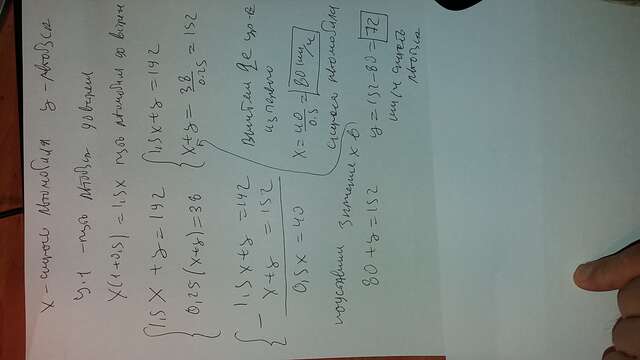 x - скорость автомобиля y - автобуса
y·1 - путь автобуса до встречи
x(1+0,5) = 1,5x путь автомобиля до встречи
1,5x + y = 192
0,25(x+y) = 38
1,5x + y = 192
x + y = 38/0.25 = 152
- 1,5x + y = 192
x + y = 152
0,5x = 40
вычтем 2е ур-е
из первого
x = 40/0.5 = 80 км/ч
скорость автомобиля
подставим значение x в
80 + y = 152
y = 152 - 80 = 72
км/ч скорость
автобуса